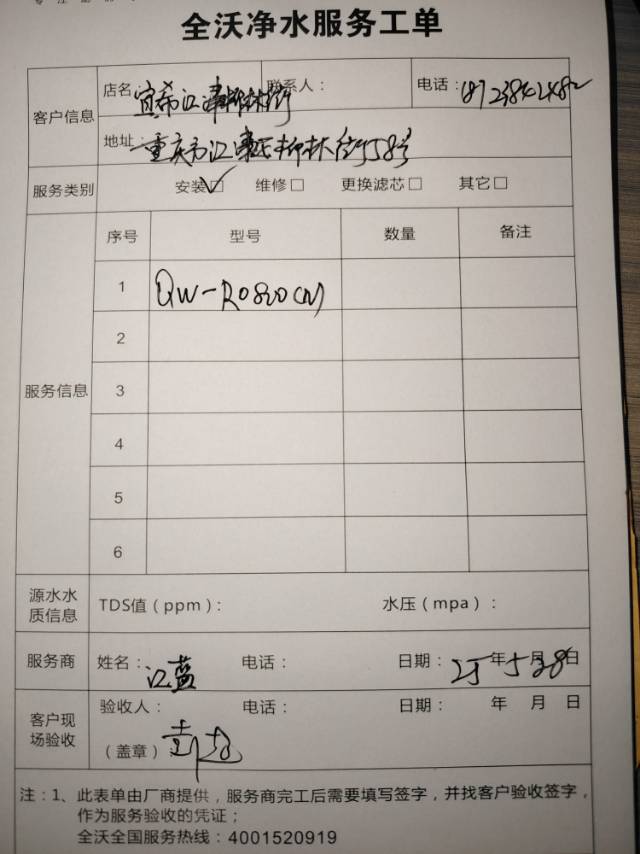 全沃净水服务工单
客户信息
店名 宜希江津柳林街 联系人： 电话：18723842482
地址： 重庆市江津区柳林街58号
服务类别 安装☑ 维修□ 更换滤芯□ 其它□
序号 型号 数量 备注
服务信息
1 QW-RO800CN
2
3
4
5
6
源水水质信息 TDS值（ppm）： 水压（mpa）：
服务商 姓名：江蓝 电话： 日期：25年5月28日
客户现场验收 验收人： 电话： 日期： 年 月 日
（盖章）
注：1、此表单由厂商提供，服务商完工后需要填写签字，并找客户验收签字，
作为服务验收的凭证；
全沃全国服务热线：4001520919